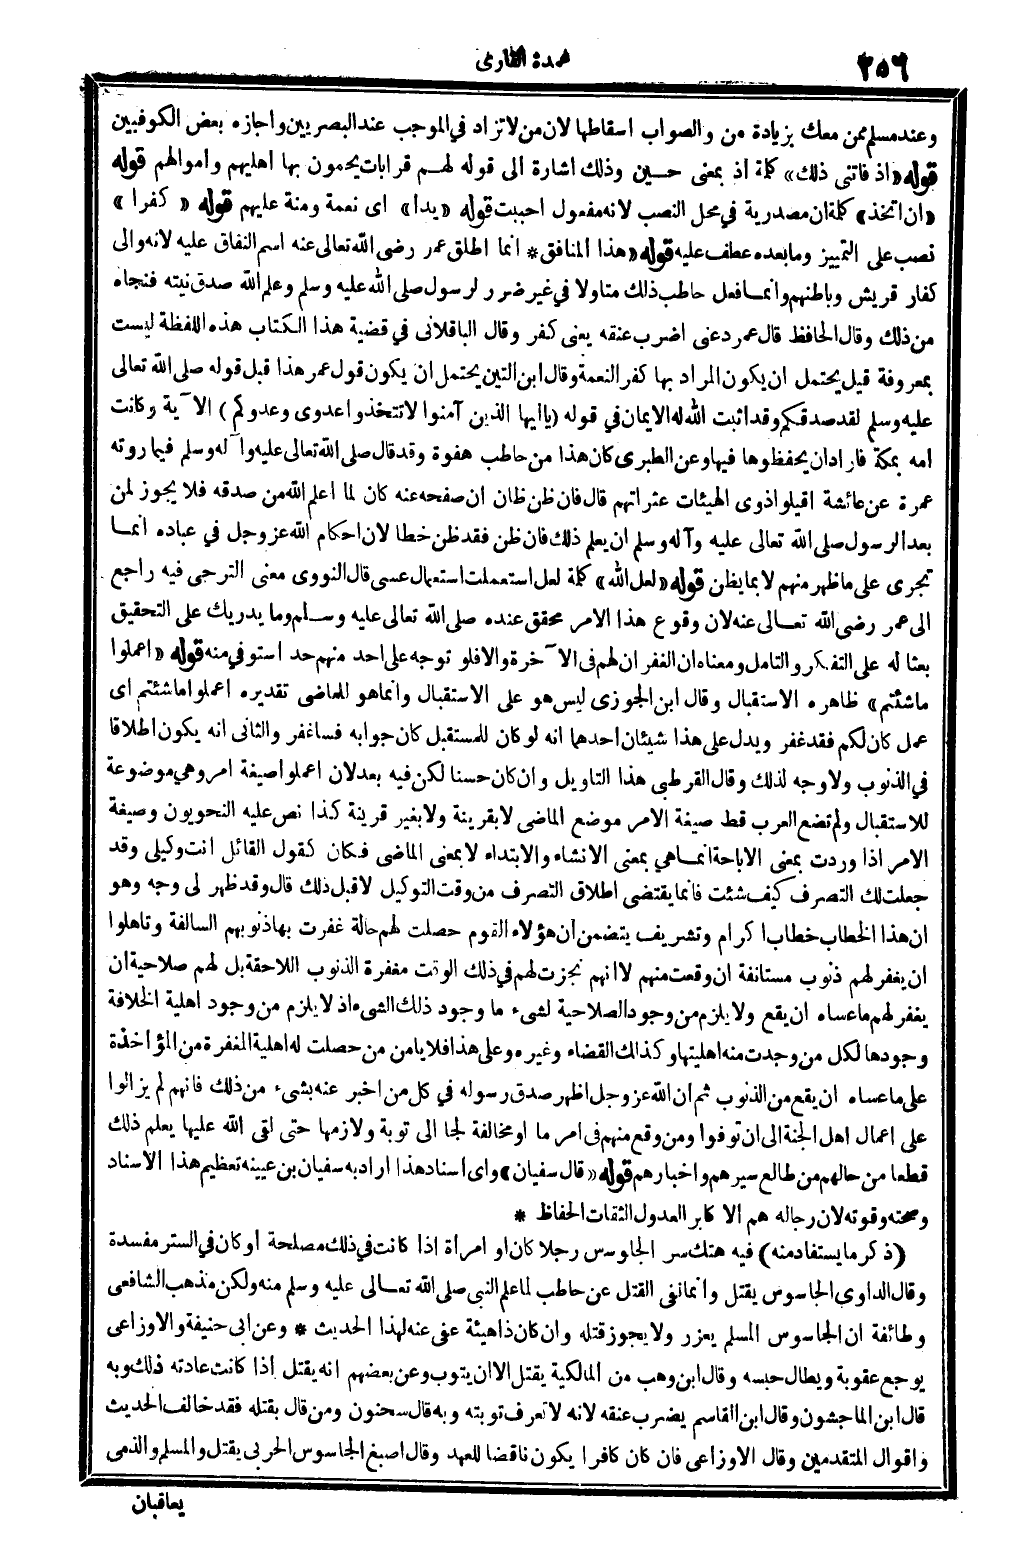 ٢٥٦
عمدة القارى
وعند مسلم ممن معك بزيادة من والصواب اسقاطها لان من لا تزاد في الموجب عند البصريين واجازه بعض الكوفيين
قوله «اذ فاتنى ذلك» كلمة اذ بمعنى حين وذلك اشارة الى قوله لهم قرابات يحمون بها اهليهم واموالهم قوله
«ان اتخذ» كلمة ان مصدرية في محل النصب لانه مفعول احببت قوله «يدا» اى نعمة ومنة عليهم قوله «كفرا»
نصب على التمييز وما بعده عطف عليه قوله «هذا المنافق» انما اطلق عمر رضى الله تعالى عنه اسم النفاق عليه لانه والى
كفار قريش وباطنهم وانما فعل حاطب ذلك متاولا في غير ضرر لرسول صلى الله عليه وسلم وعلم الله صدق نيته فنجاه
من ذلك وقال الحافظ قال عمر دعنى اضرب عنقه يعنى كفر وقال الباقلانى في قضية هذا الكتاب هذه اللفظة ليست
بمعروفة قيل يحتمل ان يكون المراد بها كفر النعمة وقال ابن التين يحتمل ان يكون قول عمر هذا قبل قوله صلى الله تعالى
عليه وسلم لقد صدقكم وقد اثبت الله له الايمان في قوله (يا ايها الذين آمنوا لا تتخذوا عدوى وعدوكم) الآية وكانت
امه بمكة فاراد ان يحفظوها فيها وعن الطبرى كان هذا من حاطب هفوة وقد قال صلى الله تعالى عليه وآله وسلم فيما روته
عمرة عن عائشة اقيلوا ذوى الهيئات عثراتهم قال فان ظن ظان ان صفحه عنه كان لما اعلم الله من صدقه فلا يجوز لمن
بعد الرسول صلى الله تعالى عليه وآله وسلم ان يعلم ذلك فان ظن فقد ظن خطا لان احكام الله عز وجل في عباده انما
تجرى على ما ظهر منهم لا بما يظن قوله «لعل الله» كلمة لعل استعملت استعمال عسى قال النووى معنى الترجى فيه راجع
الى عمر رضى الله تعالى عنه لان وقوع هذا الامر محقق عنده صلى الله تعالى عليه وسلم وما يدريك على التحقيق
بعثا له على التفكر والتامل ومعناه ان الغفران لهم فى الآخرة والا فلو توجه على احد منهم حد استوفي منه قوله «اعملوا
ما شئتم» ظاهره الاستقبال وقال ابن الجوزى ليس هو على الاستقبال وانما هو للماضى تقديره اعملوا ما شئتم اى
عمل كان لكم فقد غفر ويدل على هذا شيئان احدهما انه لو كان للمستقبل كان جوابه فساغفر والثانى انه يكون اطلاقا
في الذنوب ولا وجه لذلك وقال القرطبى هذا التاويل وان كان حسنا لكن فيه بعد لان اعملوا صيغة امر وهي موضوعة
للاستقبال ولم تضع العرب قط صيغة الامر موضع الماضى لا بقرينة ولا بغير قرينة كذا نص عليه النحويون وصيغة
الامر اذا وردت بمعنى الاباحة انما هي بمعنى الانشاء والابتداء لا بمعنى الماضى فكان كقول القائل انت وكيلى وقد
جعلت لك التصرف كيف شئت فانما يقتضى اطلاق التصرف من وقت التوكيل لا قبل ذلك قال وقد ظهر لى وجه وهو
ان هذا الخطاب خطاب اكرام وتشريف يتضمن أن هؤلاء القوم حصلت لهم حالة غفرت بها ذنوبهم السالفة وتاهلوا
ان يغفر لهم ذنوب مستانفة ان وقعت منهم لا انهم نجزت لهم في ذلك الوقت مغفرة الذنوب اللاحقة بل لهم صلاحية ان
يغفر لهم ما عساه ان يقع ولا يلزم من وجود الصلاحية لشىء ما وجود ذلك الشىء اذ لا يلزم من وجود اهلية الخلافة
وجودها لكل من وجدت منه اهليتها وكذلك القضاء وغيره وعلى هذا فلا يامن من حصلت له اهلية المغفرة من المؤاخذة
على ما عساه ان يقع من الذنوب ثم ان الله عز وجل اظهر صدق رسوله في كل من اخبر عنه بشىء من ذلك فانهم لم يزالوا
على اعمال اهل الجنة الى ان توفوا ومن وقع منهم فى امر ما او مخالفة لجا الى توبة ولازمها حتى لقى الله عليها يعلم ذلك
قطعا من حالهم من طالع سيرهم واخبارهم قوله «قال سفيان» واى اسناد هذا اراد به سفيان بن عيينه تعظيم هذا الاسناد
وصحته وقوته لان رجاله هم الاكابر العدول الثقات الحفاظ *
(ذكر ما يستفاد منه) فيه هتك سر الجاسوس رجلا كان او امرأة اذا كانت في ذلك مصلحة أو كان في الستر مفسدة
وقال الداودى الجاسوس يقتل وانما نفى القتل عن حاطب لما علم النبى صلى الله تعالى عليه وسلم منه ولكن مذهب الشافعى
وطائفة ان الجاسوس المسلم يعزر ولا يجوز قتله وان كان ذا هيئة عفى عنه لهذا الحديث * وعن ابى حنيفة والاوزاعى
يوجع عقوبة ويطال حبسه وقال ابن وهب من المالكية يقتل الا ان يتوب وعن بعضهم انه يقتل اذا كانت عادته ذلك وبه
قال ابن الماجشون وقال ابن القاسم يضرب عنقه لانه لا تعرف توبته وبه قال سحنون ومن قال بقتله فقد خالف الحديث
واقوال المتقدمين وقال الاوزاعى فان كان كافرا يكون ناقضا للعهد وقال اصبغ الجاسوس الحربى يقتل والمسلم والذمى
يعاقبان